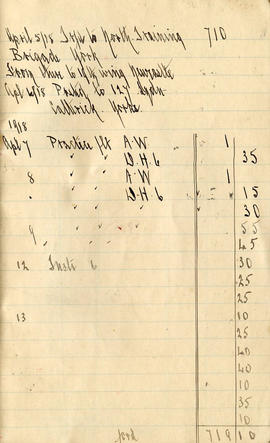 April 5/18 to North Training 710
Brigade York
From there to wing Newcastle
Apl 6/18 Posted to 127 Sqdn
Catterick Yorks
1918
Apl 7 Practice flt A.W 1
" " D.H.6 35
8 " " A.W 1
" " " D.H.6 15
" " " 30
9 " " " 55
" " 45
12 Instr 6 30
25
25
13 10
25
40
40
10
35
10
ford 719 10